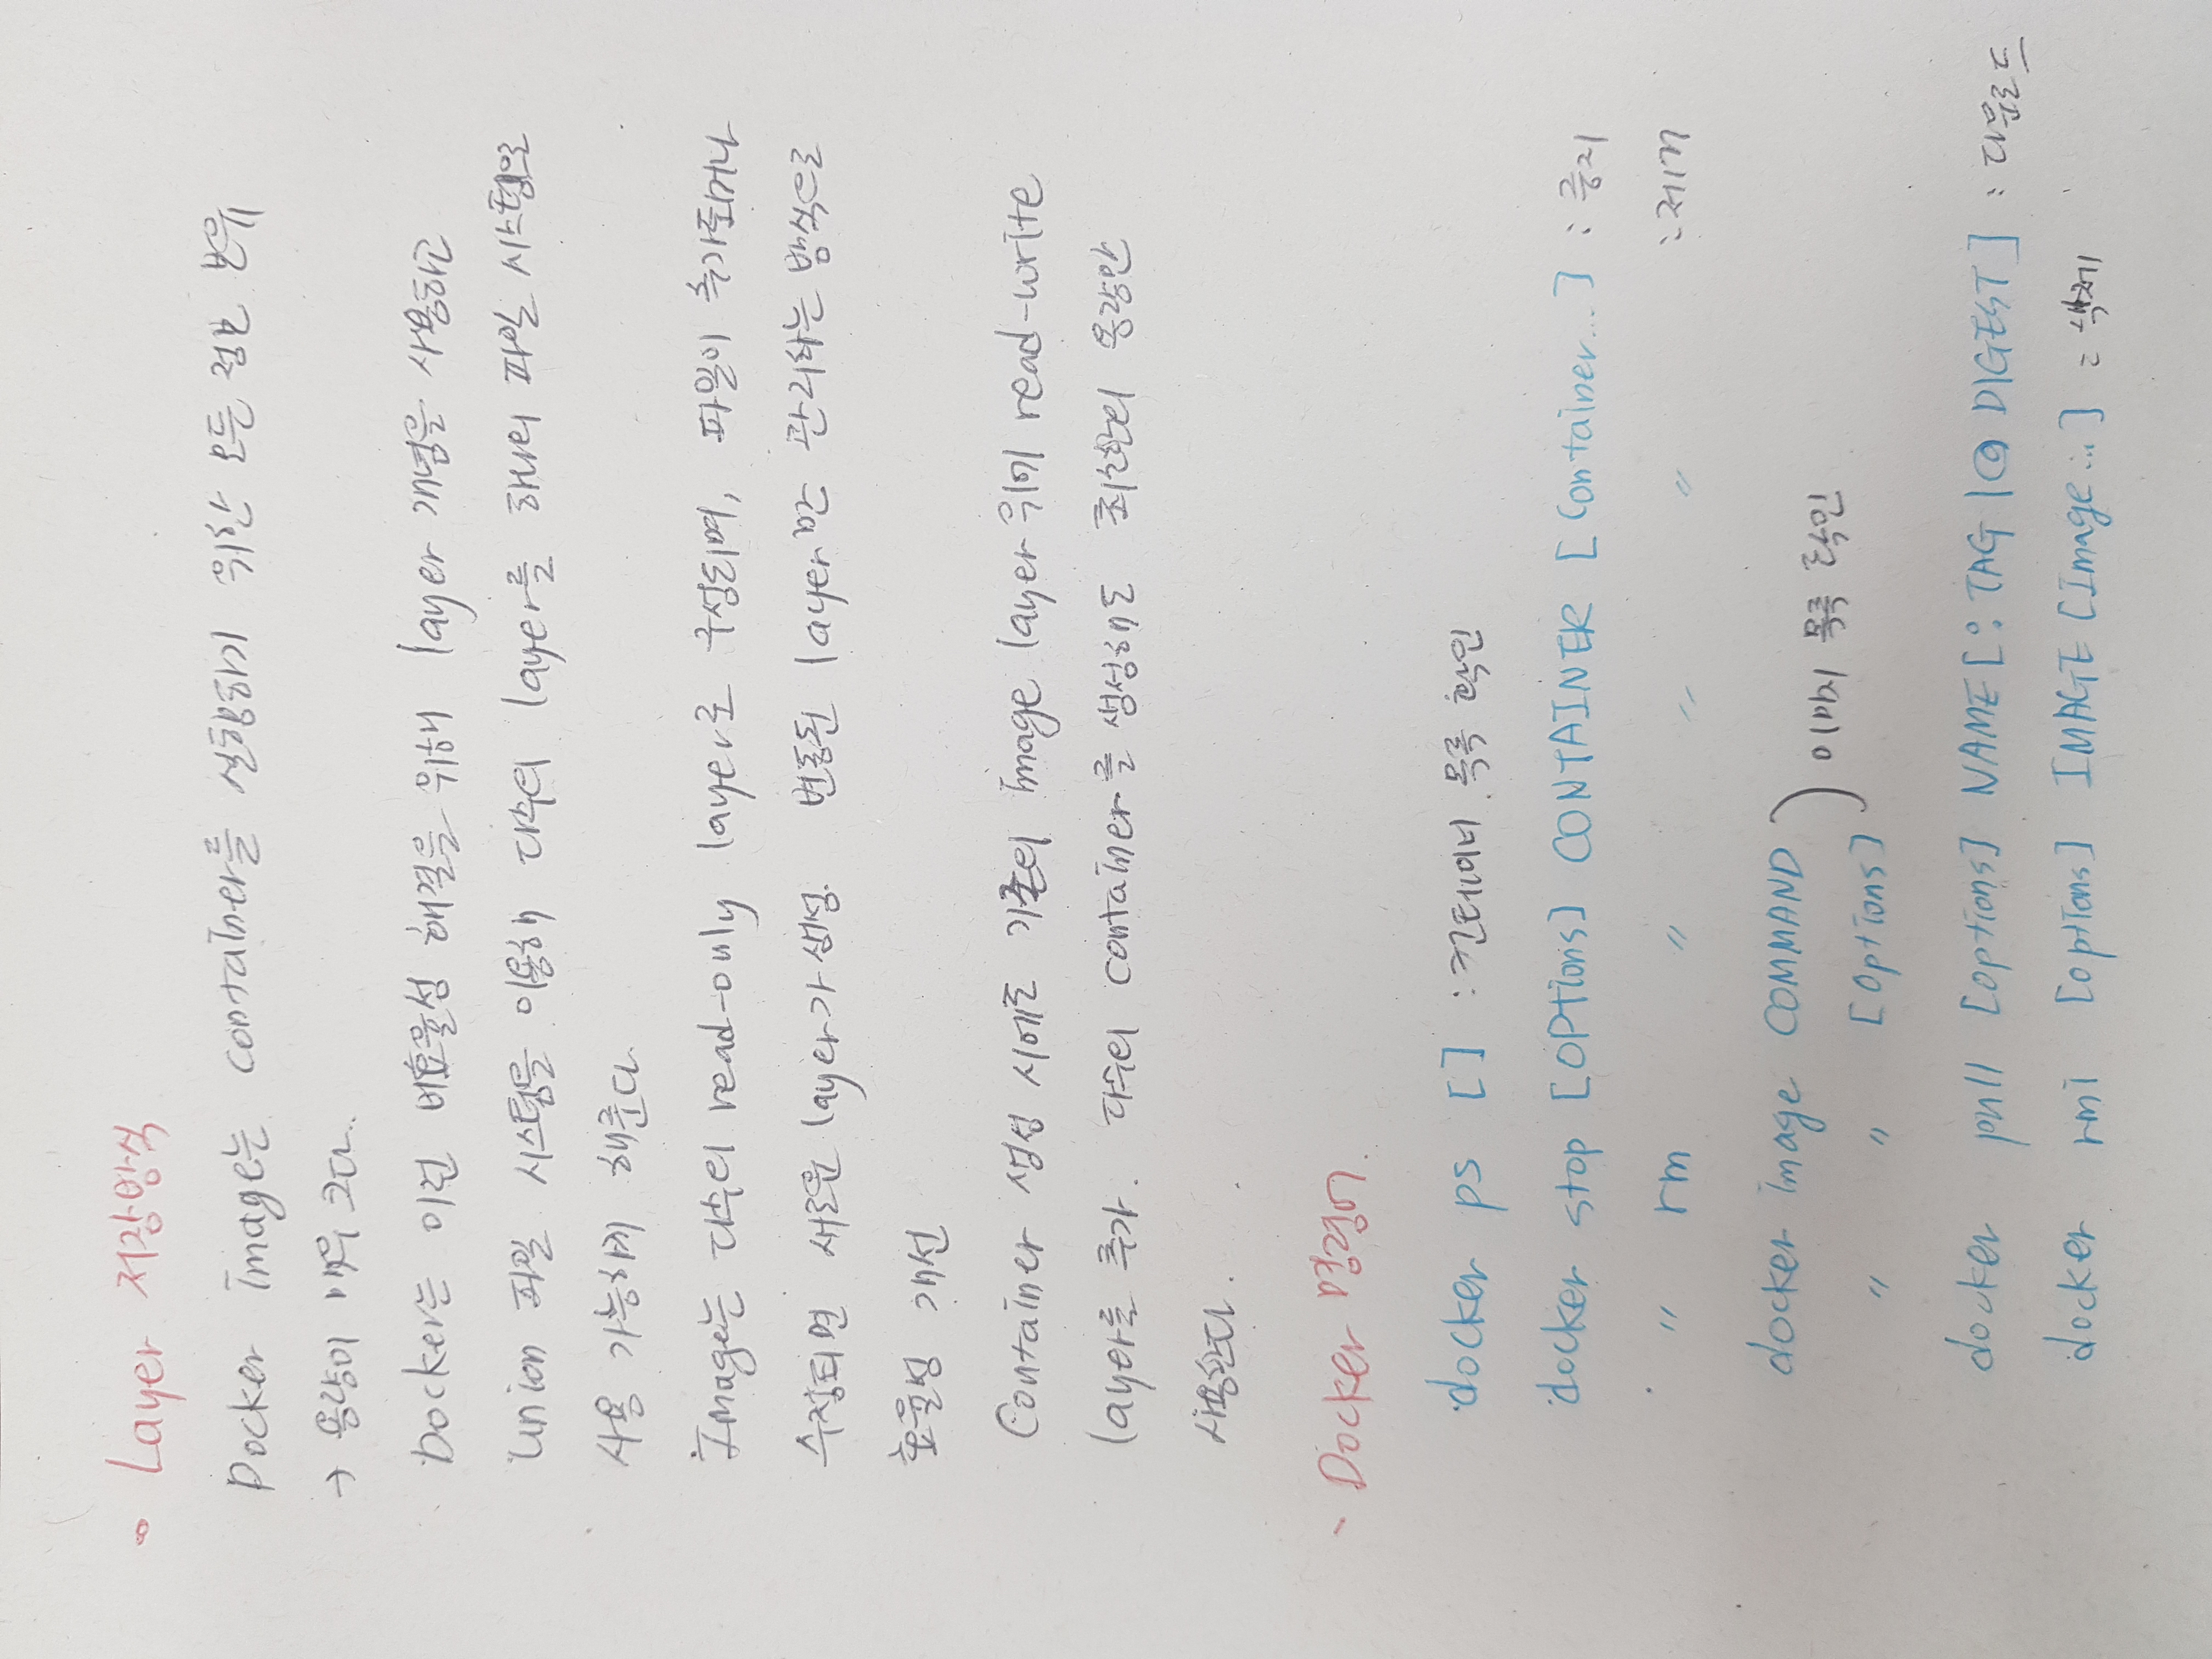 • Layer 저장방식
Docker image는 container를 실행하기 위한 모든 정보 보유
→ 용량이 매우 크다.
Docker는 이런 비효율성 해결을 위해 layer 개념을 사용하고
Union 파일 시스템을 이용해 다수의 layer를 하나의 파일 시스템으로
사용 가능하게 해준다.
Image는 다수의 read-only layer로 구성되며, 파일이 추가되거나
수정되면 새로운 layer가 생성. 변동된 layer만 관리하는 방식으로
효율성 개선
Container 생성 시에는 기존의 image layer 위에 read-write
layer를 추가. 다수의 container를 생성해도 최소한의 용량만
사용한다.
- Docker 명령어.
docker ps [] : 컨테이너 목록 확인
docker stop [OPTions] CONTAINER [Container...] : 중지
〃 rm 〃 〃 〃 :제거
docker image COMMAND ) 이미지 목록 확인
〃 〃 [Options]
docker pull [options] NAME[:TAG |@DIGEST] : 다운로드
docker rmi [options] IMAGE [Image...] : 삭제